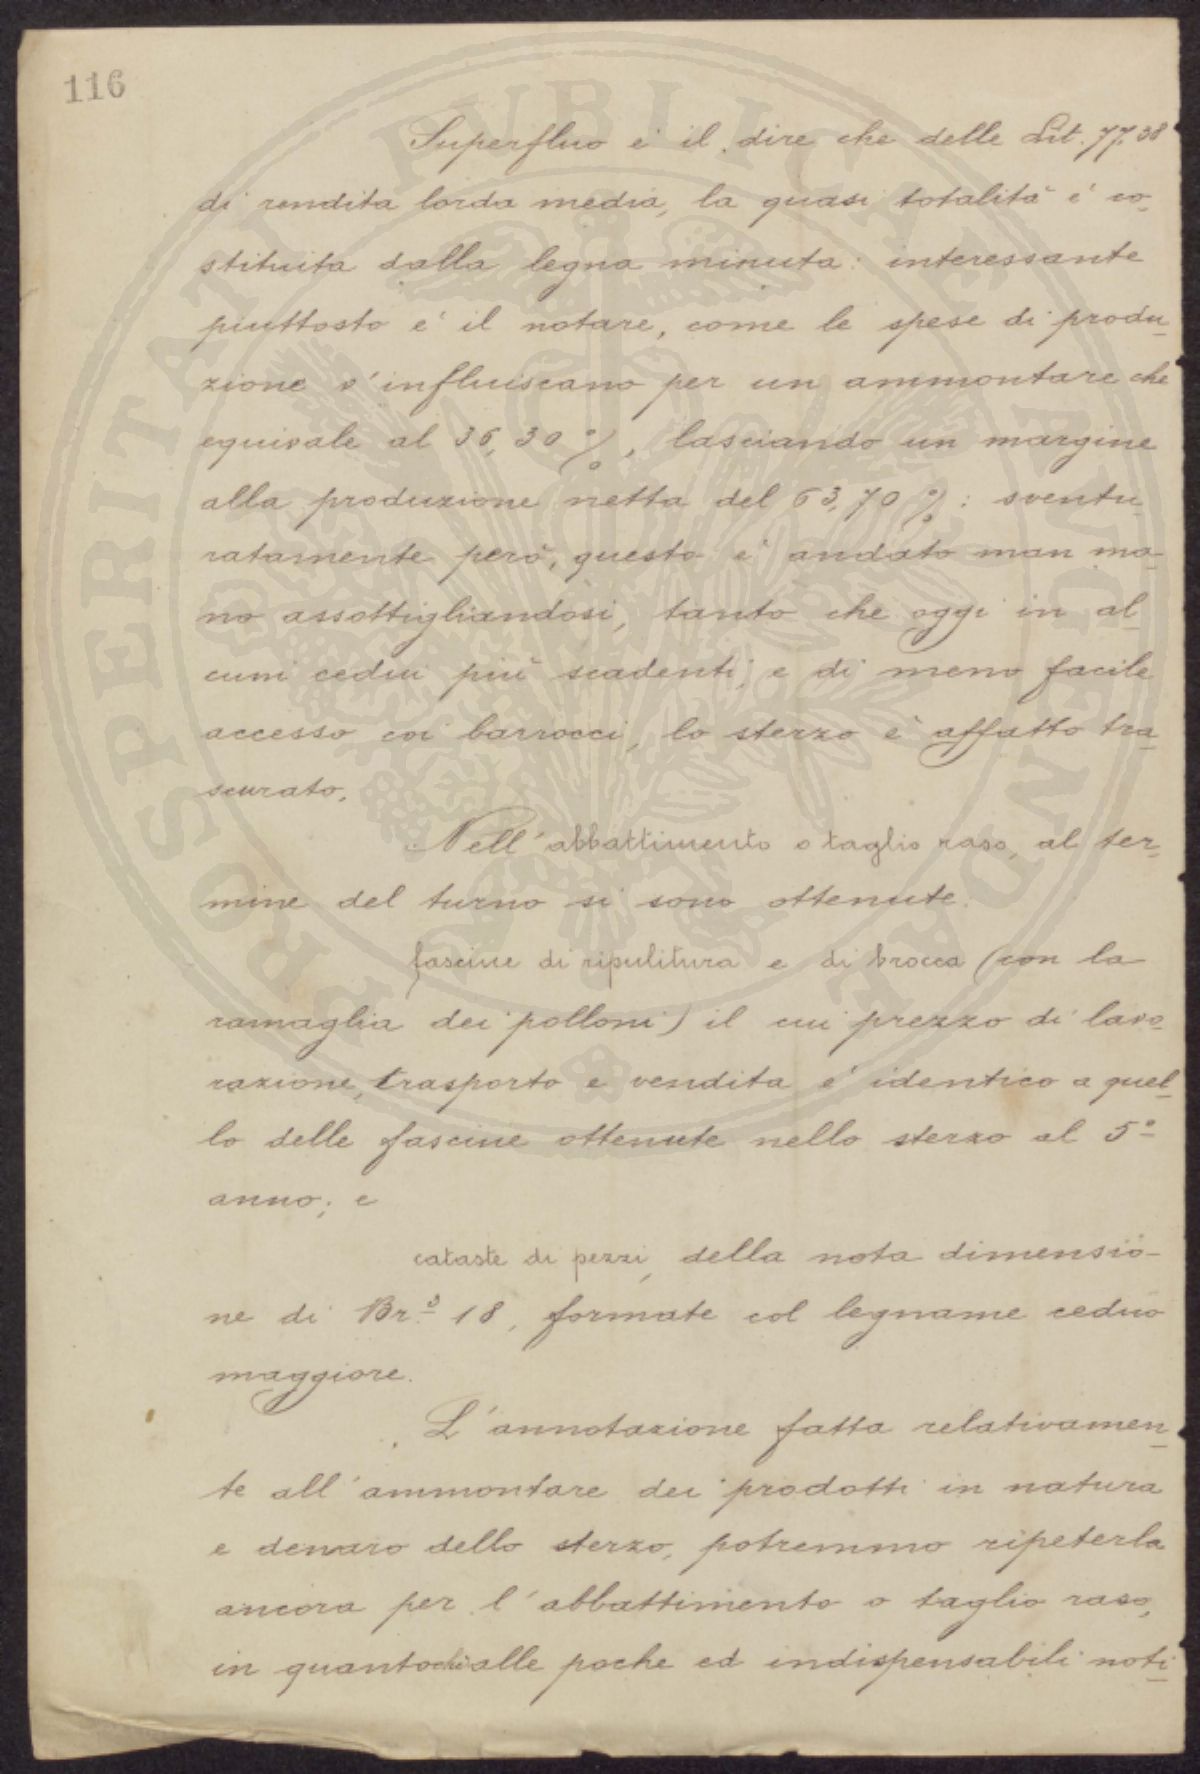 116
Superfluo é il dire che delle Lit. 77.38
di rendita lorda media, la quasi totalità é co-
stituita dalla legna minuta: interessante
piuttosto é il notare, come le spese di produ-
zione v'influiscano per un ammontare che
equivale al 36,30 %, lasciando un margine
alla produzione netta del 63,70 %: sventu-
ratamente però, questo é andato man ma-
no assottigliandosi, tanto che oggi in al-
cuni cedui più scadenti, e di meno facile
accesso coi barrocci, lo sterzo è affatto tra-
scurato.
Nell'abbattimento o taglio raso, al ter-
mine del turno si sono ottenute:
fascine di ripulitura e di brocca (con la
ramaglia dei polloni) il cui prezzo di lavo-
razione, trasporto e vendita é identico a quel-
lo delle fascine ottenute nello sterzo al 5°
anno; e
cataste di pezzi, della nota dimensio-
ne di Br.³ 18, formate col legname ceduo
maggiore.
L'annotazione fatta relativamen-
te all'ammontare dei prodotti in natura
e denaro dello sterzo, potremmo ripeterla
ancora per l'abbattimento o taglio raso,
in quantochè alle poche ed indispensabili noti-
PROSPERITATI PUBLICAE AUGENDAE